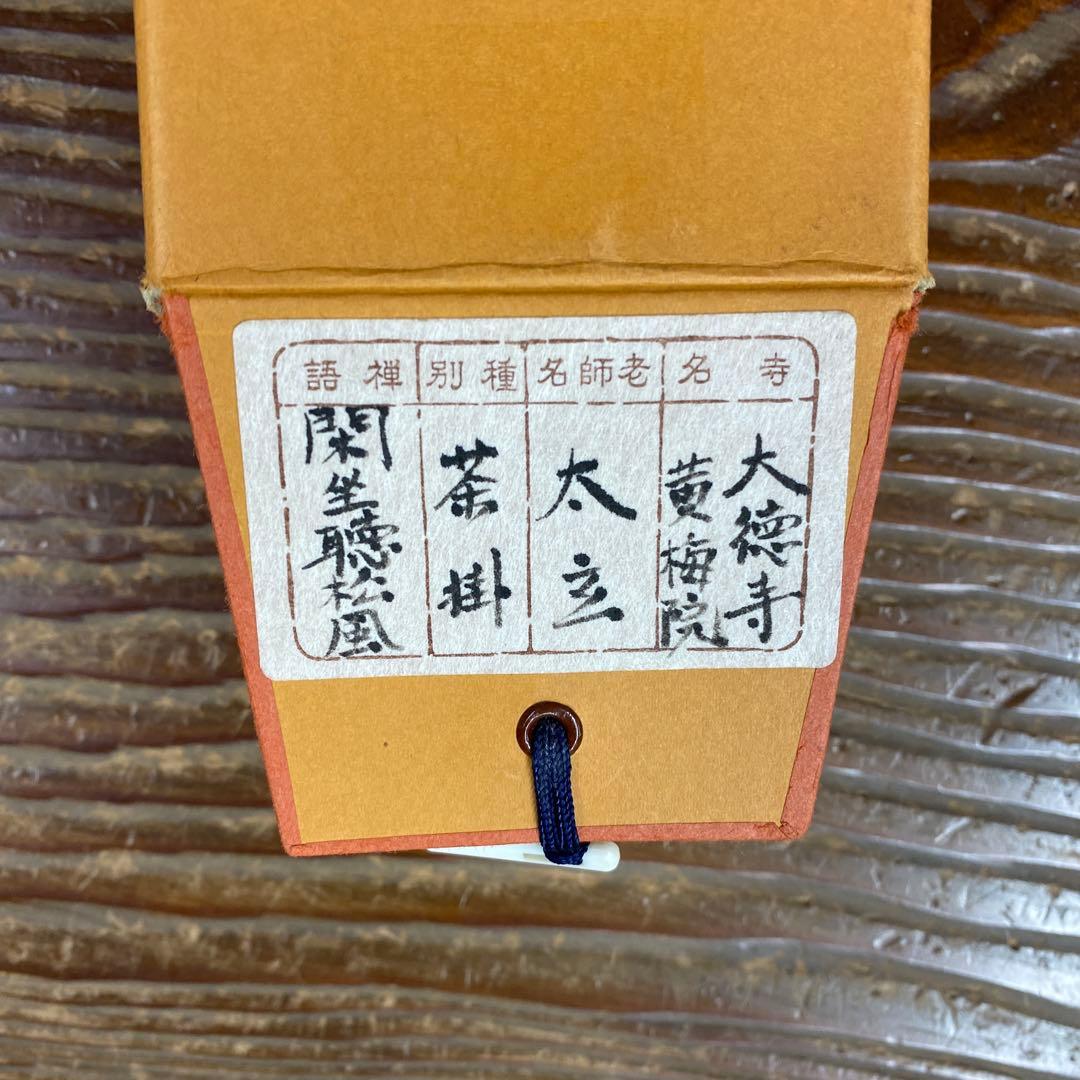 寺名
大徳寺
黄梅院
老師名
太玄
種別
茶掛
禅語
閑坐聴松風